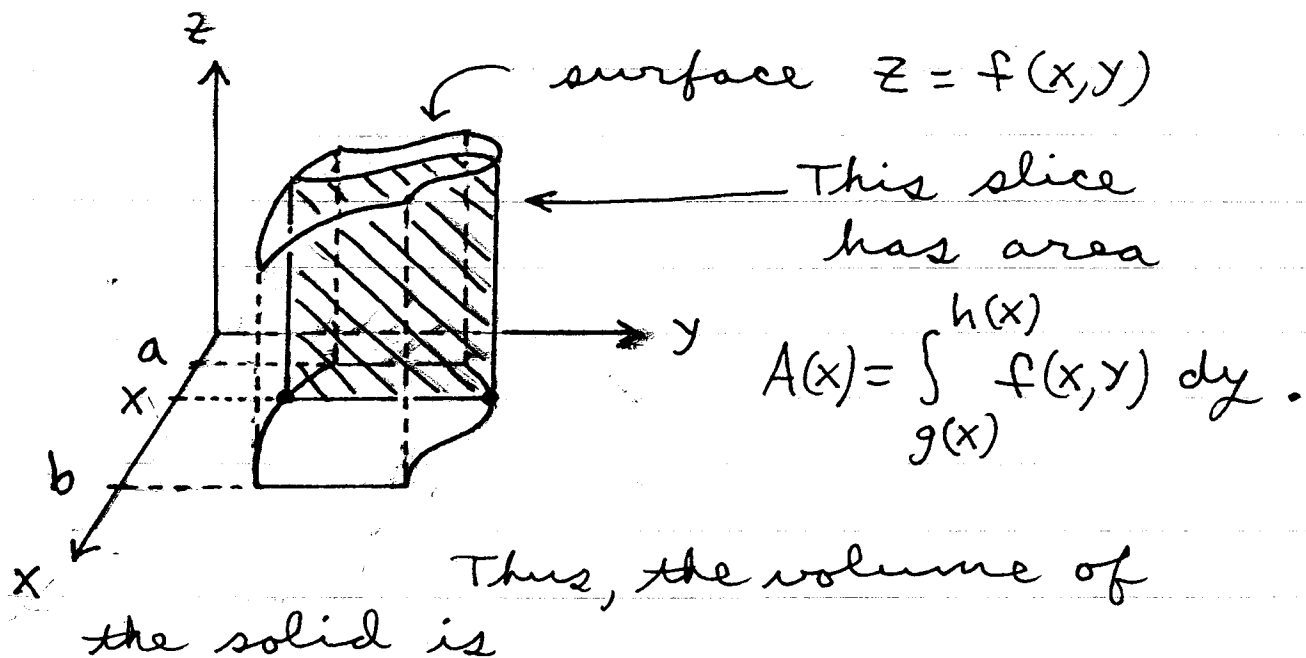 z
surface z = f(x,y)
This slice
has area
h(x)
A(x) = ∫ f(x,y) dy .
g(x)
y
a
x
b
x
Thus, the volume of
the solid is